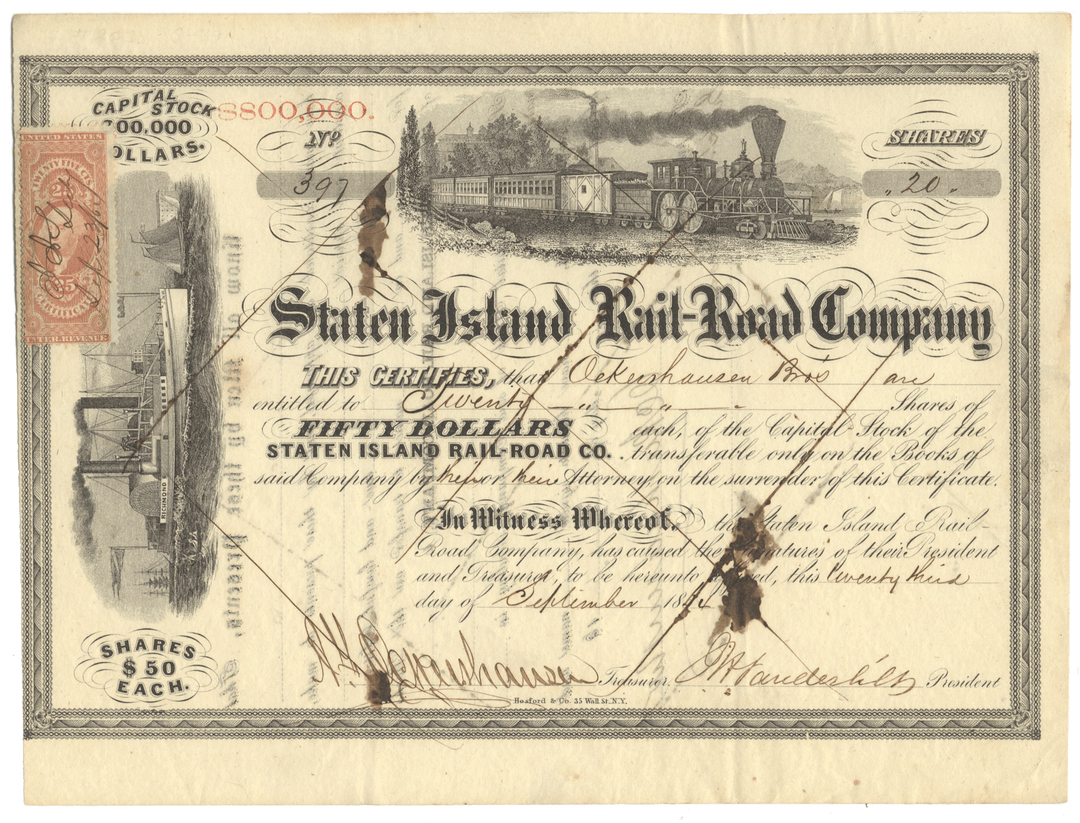 CAPITAL STOCK
00,000
OLLARS.
$800,000.
No
397
SHARES
„ 20 „
UNITED STATES
TWENTY FIVE CENTS
25
CERTIFICATE
INTER. REVENUE
RICHMOND
Staten Island Rail-Road Company
THIS CERTIFIES, that Ockershausen Bros are
entitled to Twenty Shares of
FIFTY DOLLARS each, of the Capital Stock of the
STATEN ISLAND RAIL-ROAD CO. transferable only on the Books of
said Company by their or their Attorney on the surrender of this Certificate.
In Witness Whereof, the Staten Island Rail-
Road Company, has caused the signatures of their President
and Treasurer, to be hereunto, this twenty third
day of September 18
Ockershausen Treasurer. J H Vanderbilt President
SHARES
$50
EACH.
Hosford & Co. 35 Wall St. N.Y.